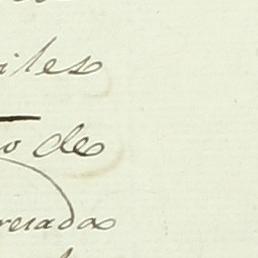 iles
o de
resados